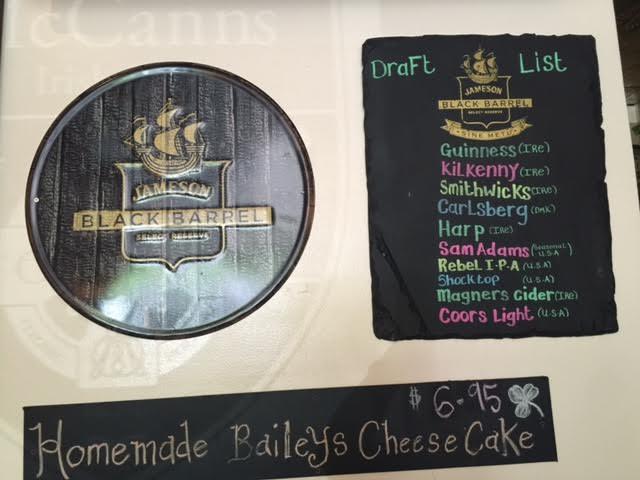 McCanns
JAMESON
BLACK BARREL
SELECT RESERVE
Draft List
JAMESON
BLACK BARREL
SELECT RESERVE
SINE METU
Guinness (IRe)
Kilkenny (IRe)
Smithwicks (IRe)
Carlsberg (DMK)
Harp (IRe)
Sam Adams (Seasonal U.S.A)
Rebel I.P.A (U.S.A)
Shocktop (U.S.A)
Magners Cider (IRe)
Coors Light (U.S.A)
$ 6.95
Homemade Baileys Cheese Cake